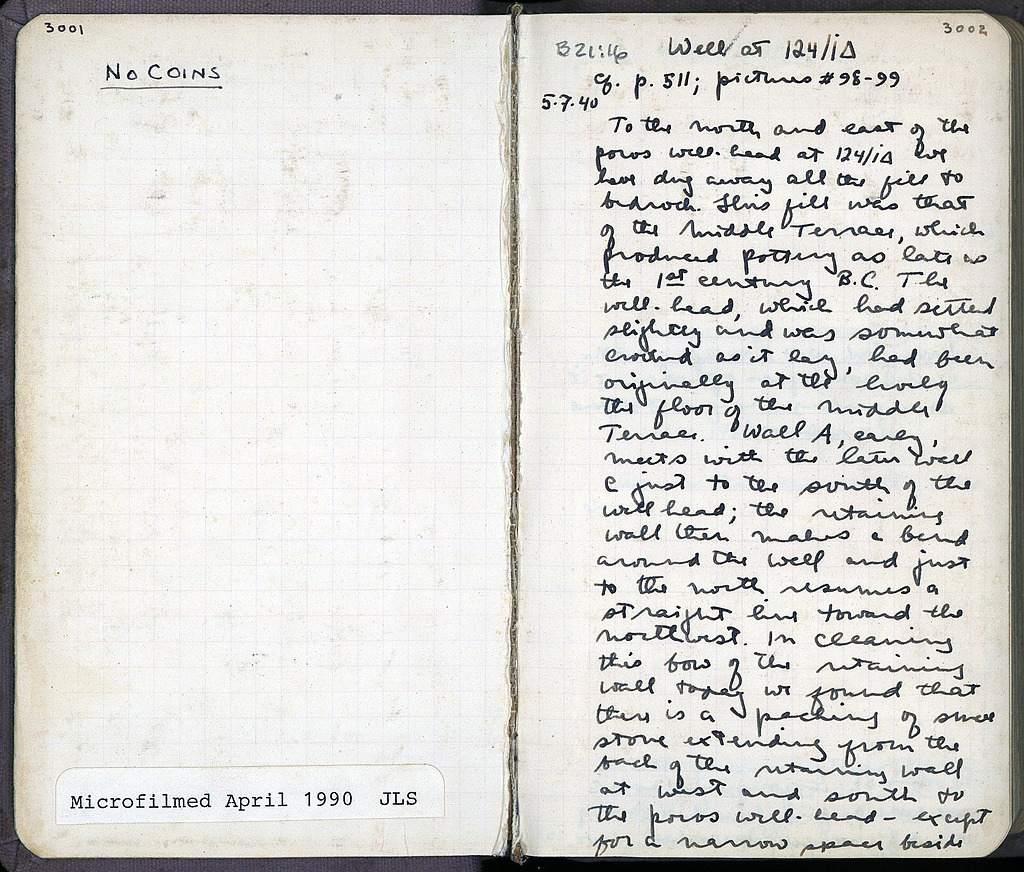 3001
NO COINS
Microfilmed April 1990 JLS
3002
B 21:16 Well at 124/ΙΔ
cf. p. 511; pictures #98-99
5.7.40
To the north and east of the
poros well-head at 124/ΙΔ we
have dug away all the fill to
bedrock. This fill was that
of the Middle Terrace, which
produced pottery as late as
the 1st century B.C. The
well-head, which had settled
slightly and was somewhat
crooked as it lay, had been
originally at the level of
the floor of the Middle
Terrace. Wall A, early,
meets with the later wall
C just to the south of the
well head; the retaining
wall then makes a bend
around the well and just
to the north resumes a
straight line toward the
northwest. In cleaning
this bow of the retaining
wall today we found that
there is a packing of small
stone extending from the
back of the retaining wall
at west and south to
the poros well-head - except
for a narrow space beside